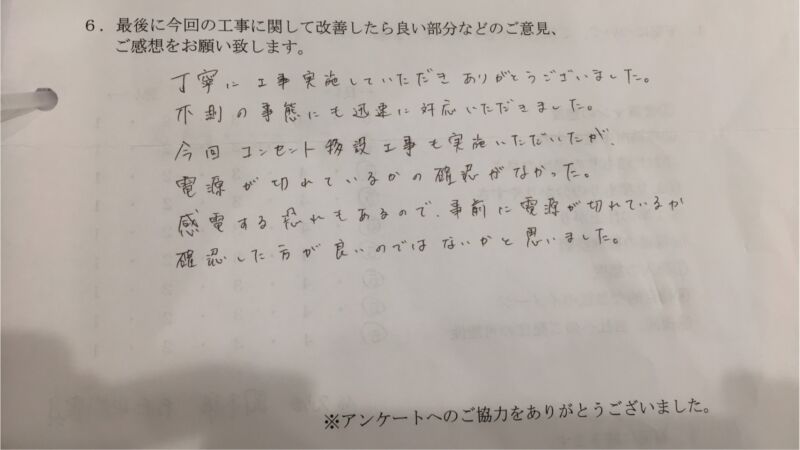 6．最後に今回の工事に関して改善したら良い部分などのご意見、
ご感想をお願い致します。
丁寧に工事実施していただきありがとうございました。
不測の事態にも迅速に対応いただきました。
今回コンセント移設工事も実施いただいたが、
電源が切れているかの確認がなかった。
感電する恐れもあるので、事前に電源が切れているか
確認した方が良いのではないかと思いました。
※アンケートへのご協力をありがとうございました。